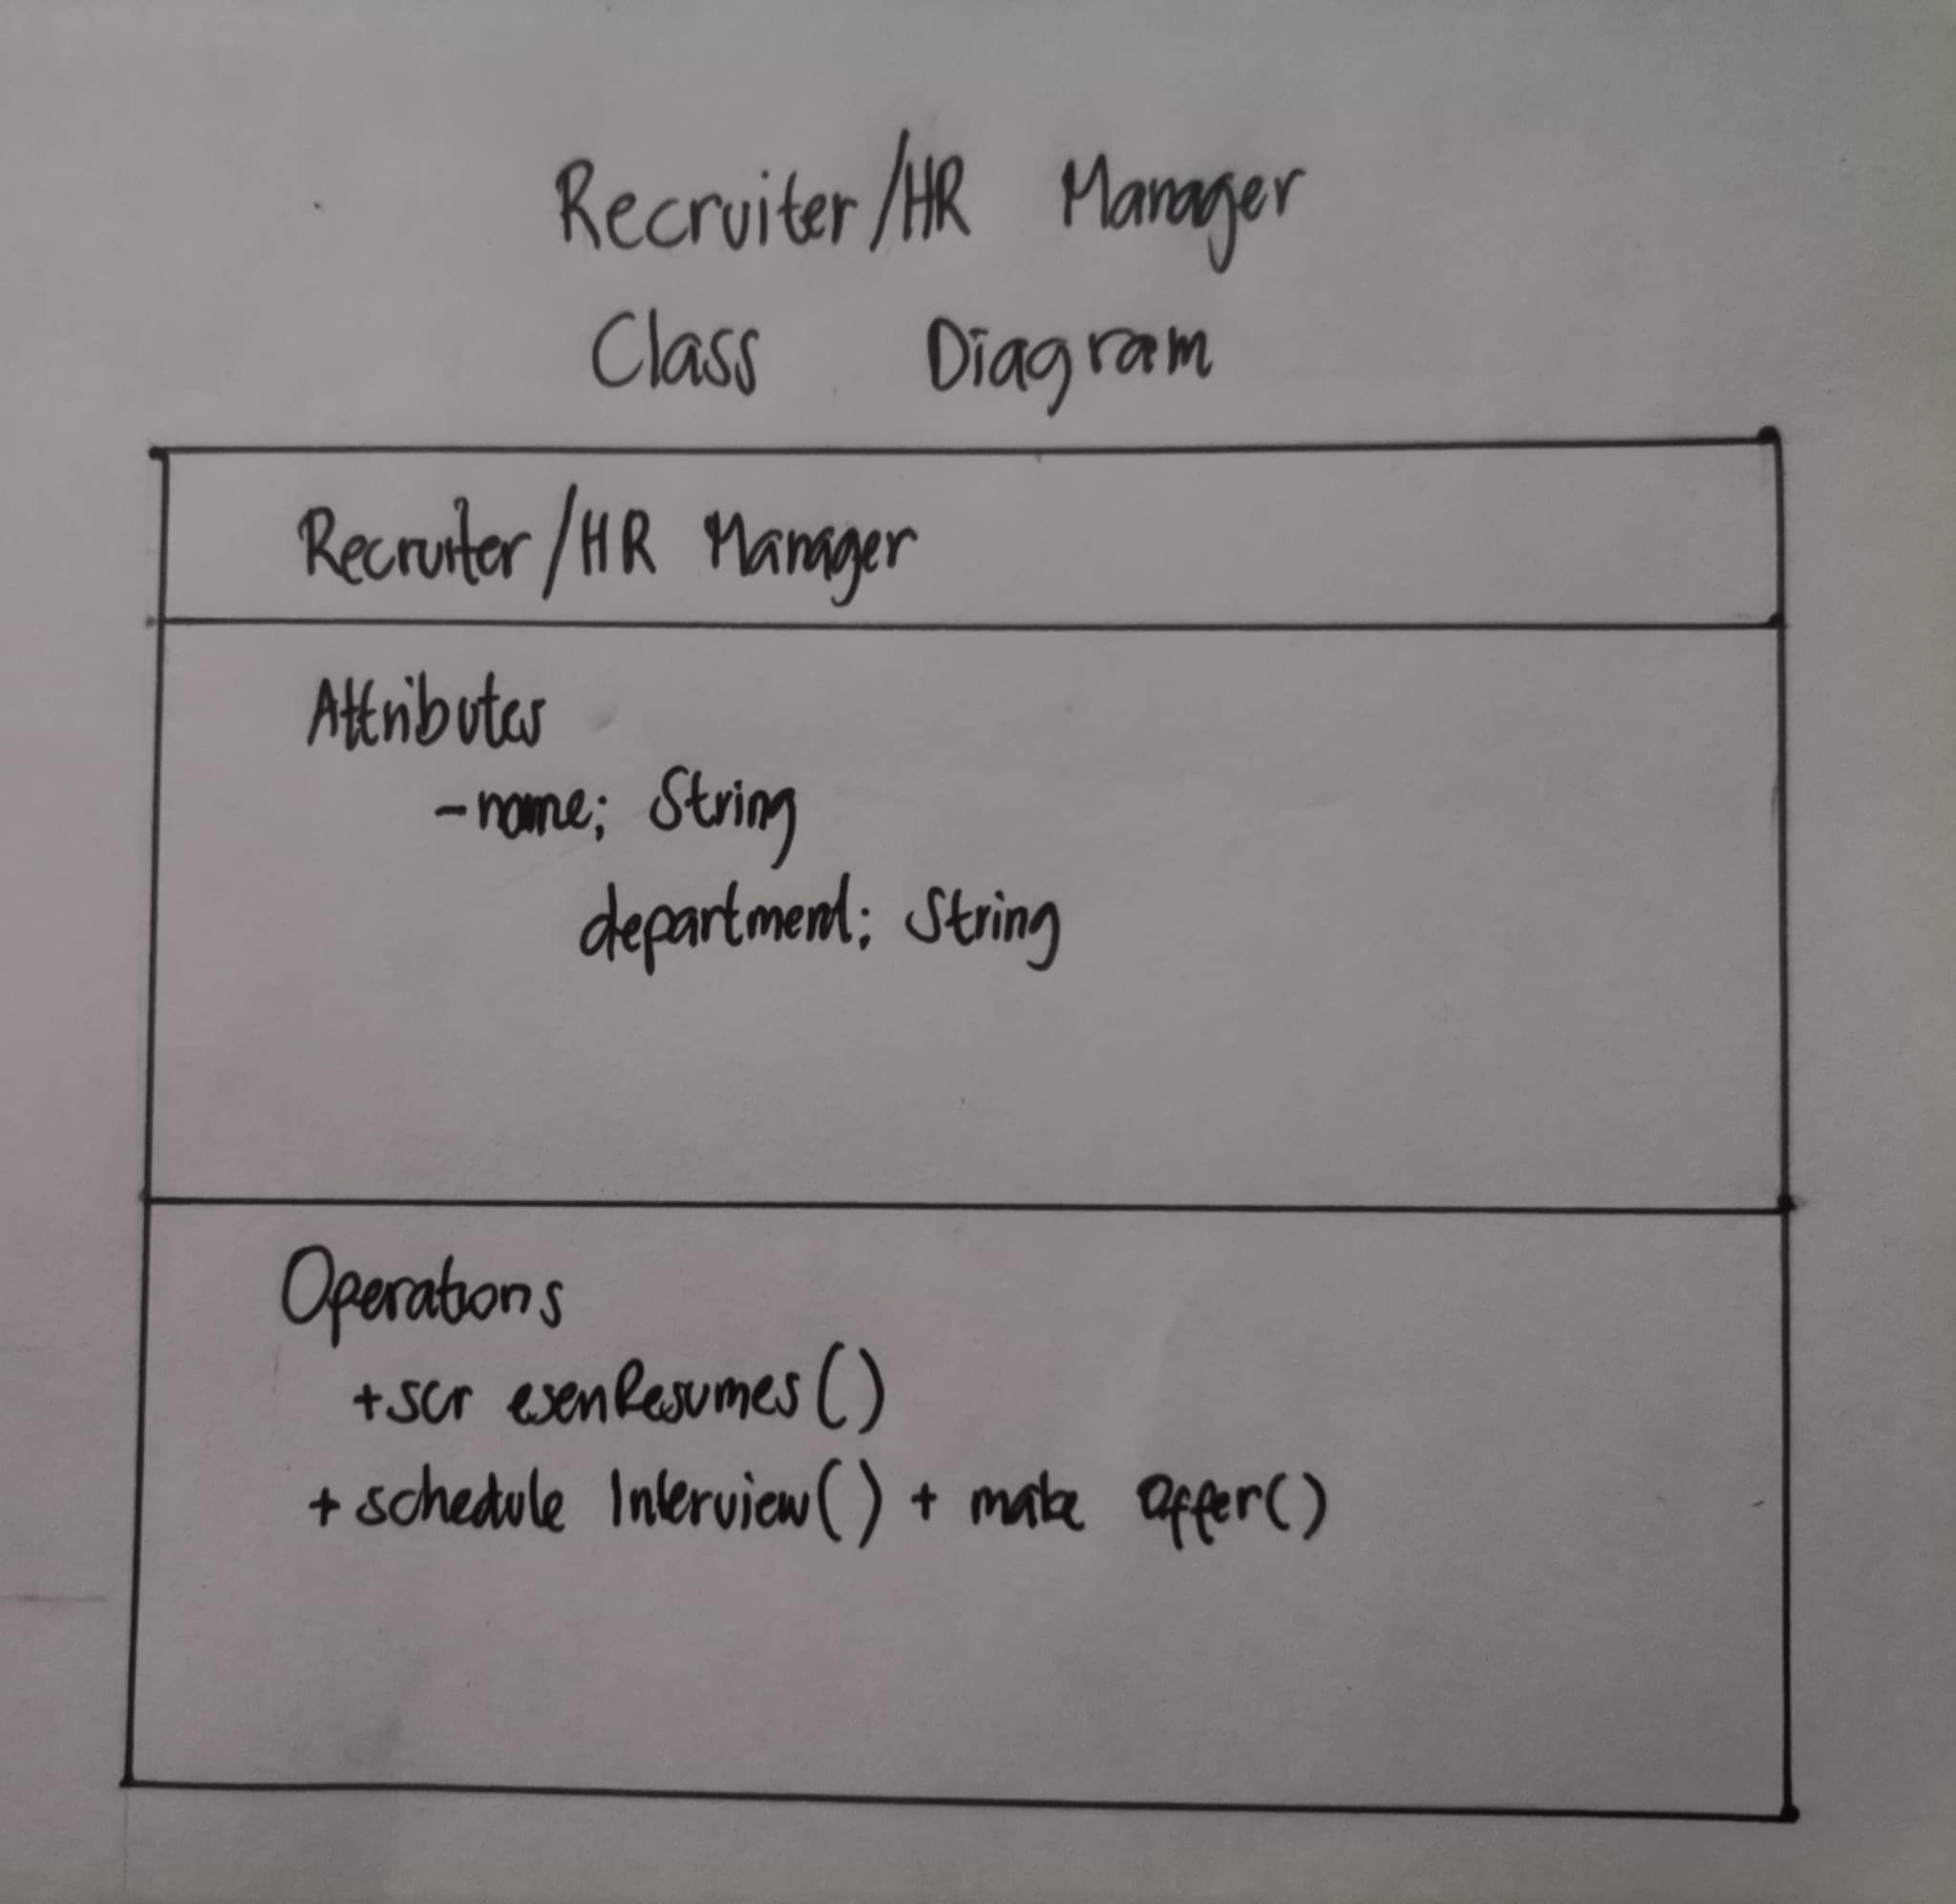 Recruiter/HR Manager
Class Diagram
Recruiter/HR Manager
Attributes
-name; String
department; String
Operations
+scr esenResumes()
+ schedule Interview() + make Offer()